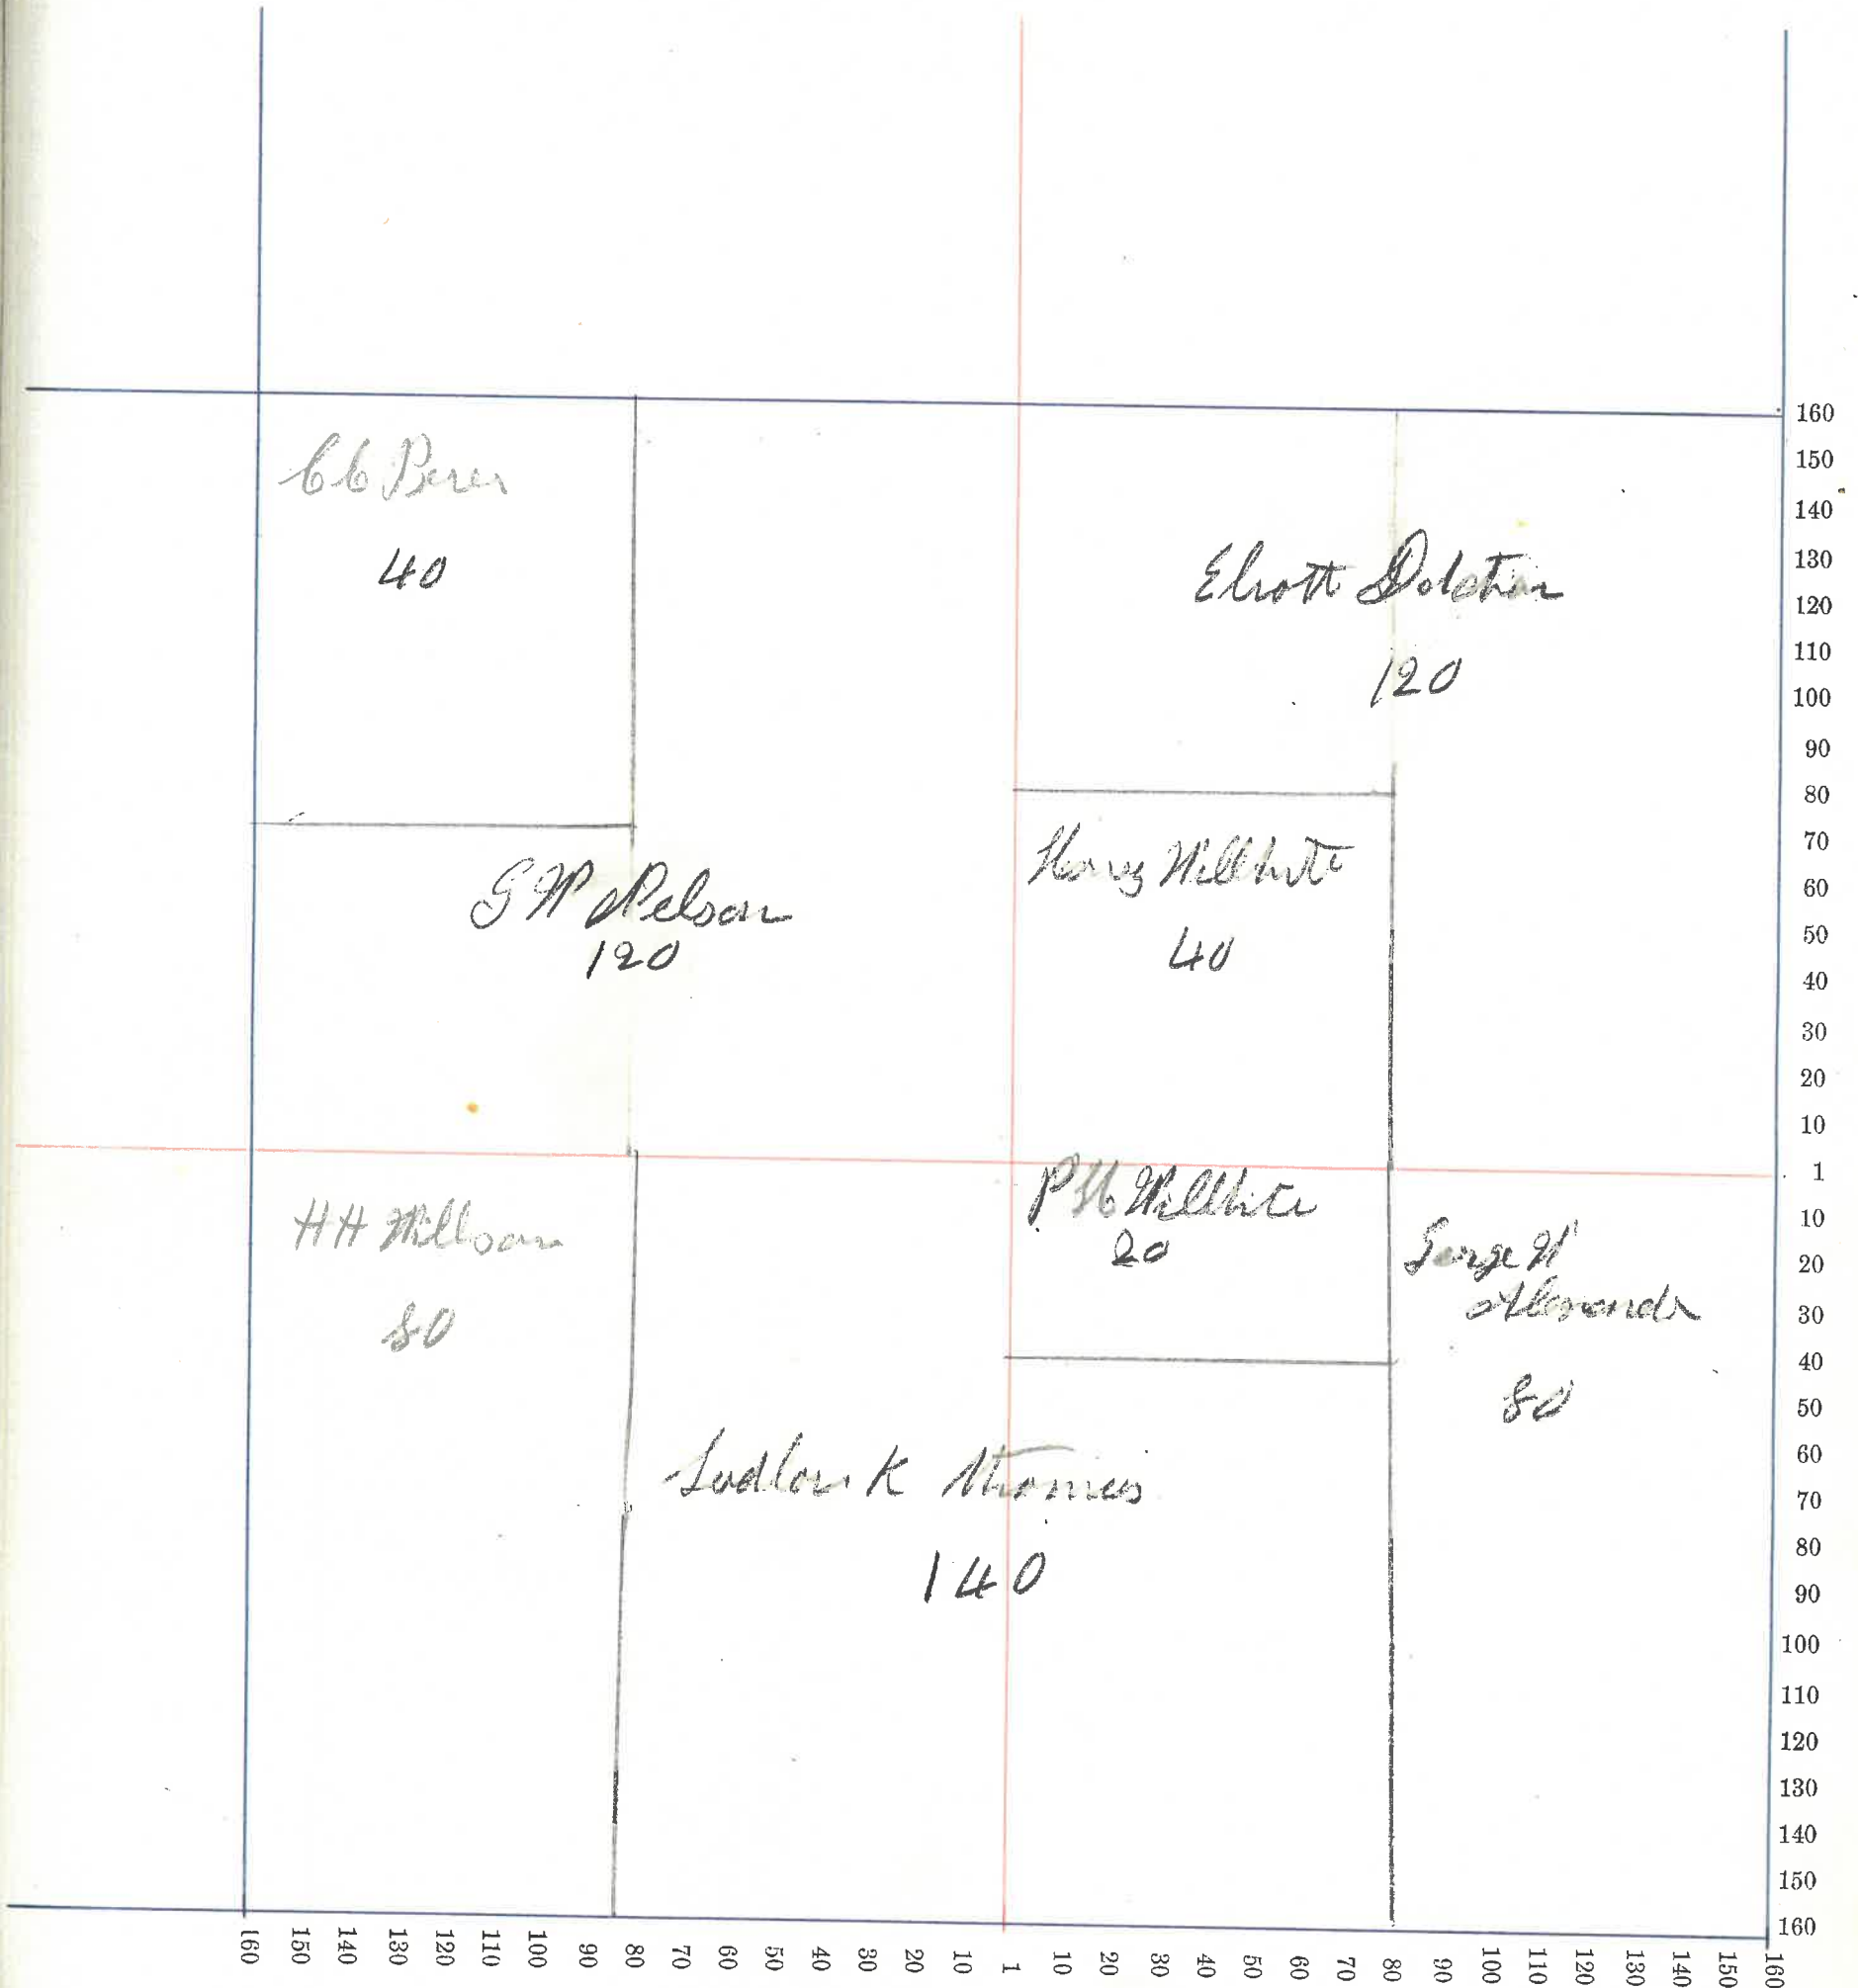 C C
40
120
G W Nelson
120
40
P H Willhite
20
H H Willson
80
George W
80
Ludlow K Thomas
140
160
150
140
130
120
110
100
90
80
70
60
50
40
30
20
10
1
10
20
30
40
50
60
70
80
90
100
110
120
130
140
150
160
160 150 140 130 120 110 100 90 80 70 60 50 40 30 20 10 1 10 20 30 40 50 60 70 80 90 100 110 120 130 140 150 160